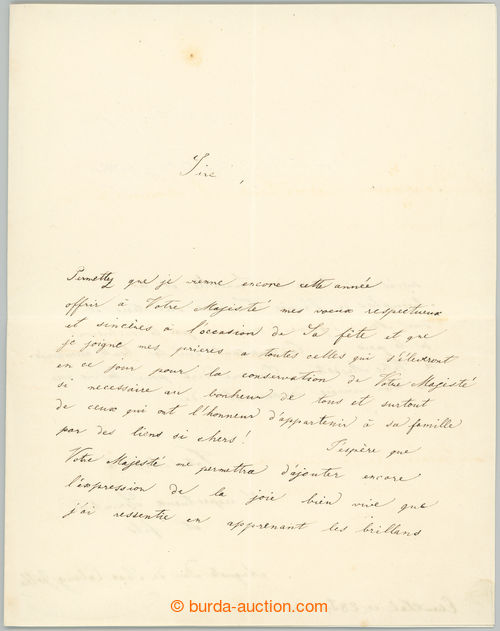 Sire,
Permettez que je vienne encore cette année
offrir à Votre Majesté mes voeux respectueux
et sincères à l'occasion de Sa fête et que
je joigne mes prieres a toutes celles qui s'éleveront
en ce jour pour la conservation de Votre Majesté
si necessaire au bonheur de tous et surtout
de ceux qui ont l'honneur d'appartenir à sa famille
par des liens si chers! J'espère que
Votre Majesté me permettra d'ajouter encore
l'expression de la joie bien vive que
j'ai ressentie en apprenant les brillans
© burda-auction.com